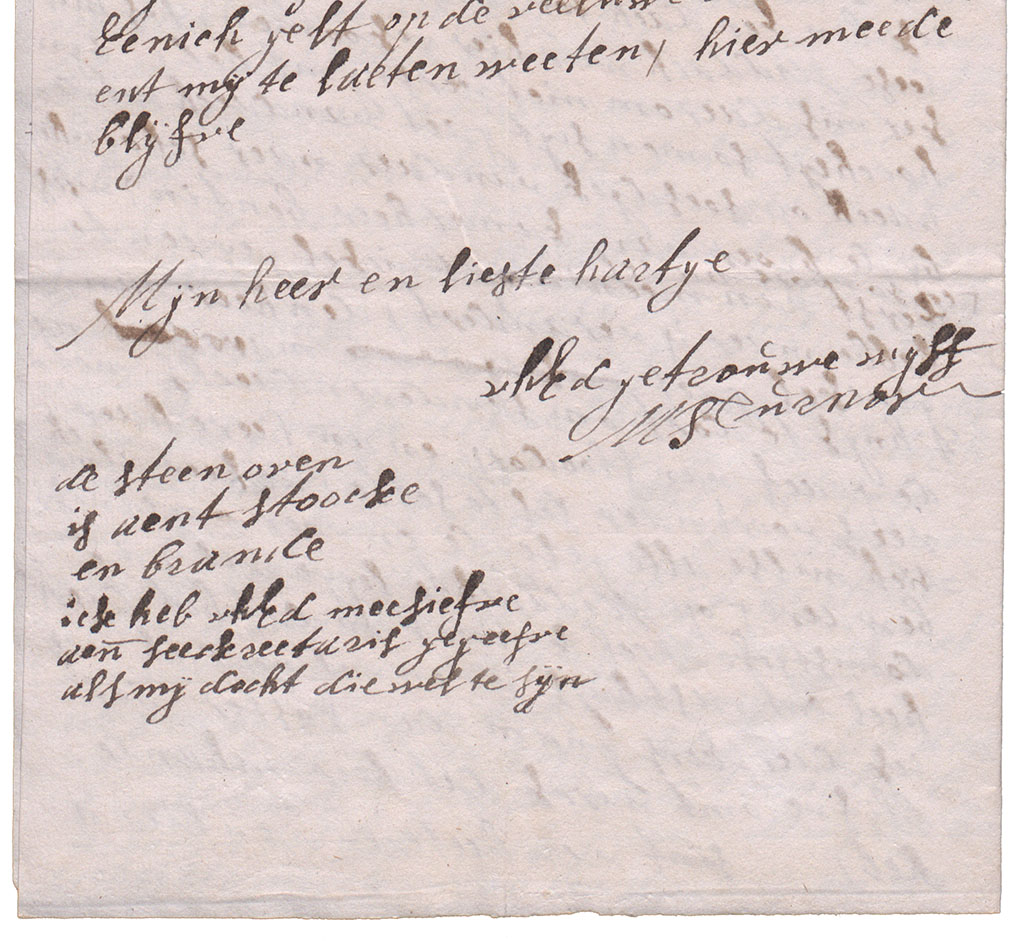 eenich gelt op de
ent mÿ te laeten weeten / hier meede
blÿfve
Mÿn heer en liefste hartye
uhEd getrouwe wyff
MS Turnor
de steen oven
is aent stoocke
en brande
ick heb uhEd meesiefve
aen seeckreetaris gegeefve
alss mÿ docht die wel te sÿn